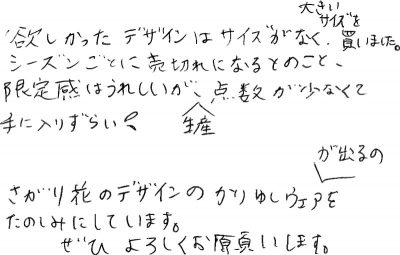 欲しかったデザインはサイズがなく、大きいサイズを買いました。
シーズンごとに売切れになるとのこと、
限定感はうれしいが、生産点数が少なくて
手に入りずらい!
さがり花のデザインのかりゆしウェアが出るのを
たのしみにしています。
ぜひよろしくお願いします。